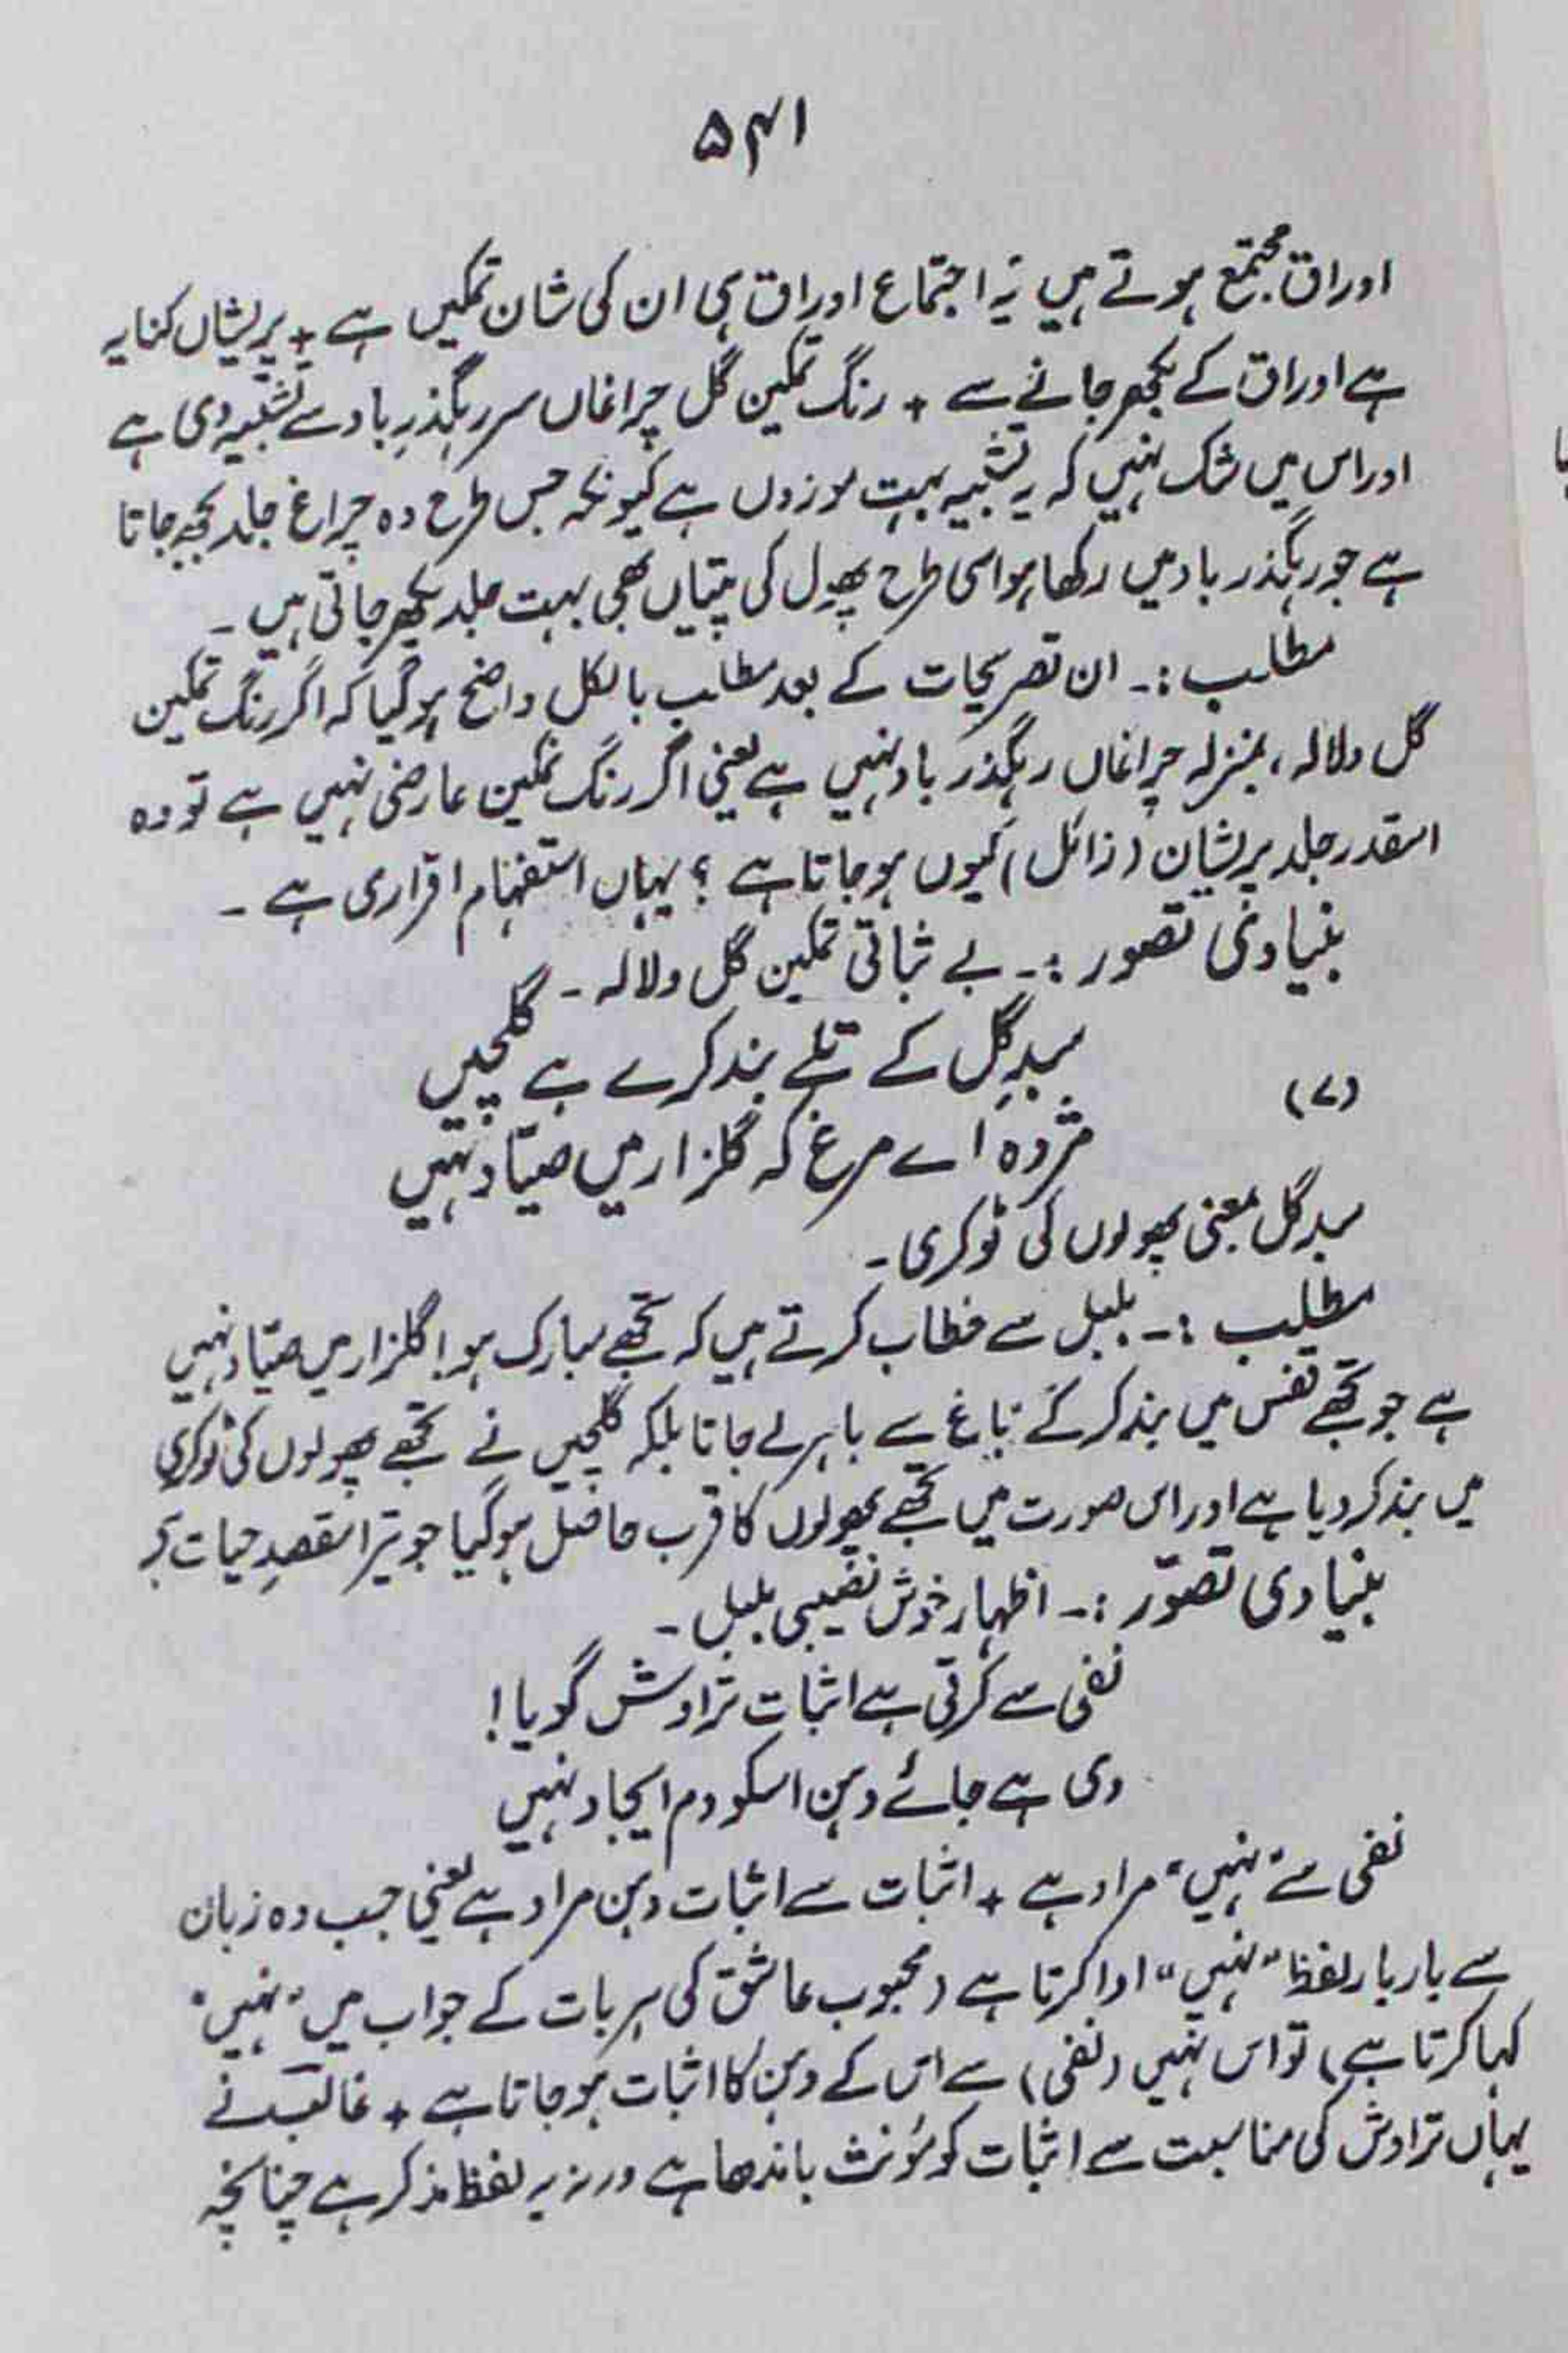 ۵۴۱
اوراق مجتمع ہوتے ہیں یہ اجتماع اوراق ہی ان کی شان تمکیں ہے + پریشاں کنایہ
ہے اوراق کے بکھر جانے سے + رنگ تمکین گل چراغاں سر رہگذرِ باد سے تشبیہ دی ہے
اور اس میں شک نہیں کہ یہ تشبیہ بہت موزوں ہے کیونکہ جس طرح وہ چراغ جلد بجھ جاتا
ہے جو رہگذر باد میں رکھا ہو اسی طرح پھول کی پتیاں بھی بہت جلد بکھر جاتی ہیں ۔
مطلب :۔ ان تصریحات کے بعد مطلب بالکل واضح ہو گیا کہ اگر رنگ تمکین
گل ولالہ، بمنزلہ چراغاں رہگذر باد نہیں ہے یعنی اگر رنگ تمکین عارضی نہیں ہے تو وہ
اسقدر جلد پریشان (زائل) کیوں ہو جاتا ہے ؟ یہاں استفہام اقراری ہے ۔
بنیادی تصور :۔ بے ثباتی تمکین گل ولالہ ۔
سبدِ گل کے تلے بند کرے ہے گلچیں
(۷)
مژدہ اے مرغ کہ گلزار میں صیّاد نہیں
سبد گل بمعنی پھولوں کی ٹوکری ۔
مطلب :۔ بلبل سے خطاب کرتے ہیں کہ تجھے مبارک ہو! گلزار میں صیّاد نہیں
ہے جو تجھے قفس میں بند کر کے باغ سے باہر لے جاتا بلکہ گلچیں نے تجھے پھولوں کی ٹوکری
میں بند کر دیا ہے اور اس صورت میں تجھے پھولوں کا قرب حاصل ہو گیا جو تیرا مقصدِ حیات ہے
بنیادی تصوّر :۔ اظہار خوش نصیبی بلبل ۔
نفی سے کرتی ہے اثبات تراوش گویا!
دی ہے جائے دہن اسکو دم ایجاد نہیں
نفی سے "نہیں" مراد ہے + اثبات سے اثبات دہن مراد ہے یعنی جب وہ زبان
سے بار بار لفظ "نہیں" ادا کرتا ہے (محبوب عاشق کی ہر بات کے جواب میں "نہیں"
کہا کرتا ہے) تو اس نہیں (نفی) سے اس کے دہن کا اثبات ہو جاتا ہے + غالب نے
یہاں تراوش کی مناسبت سے اثبات کو مؤنث باندھا ہے ورنہ یہ لفظ مذکر ہے چنانچہ